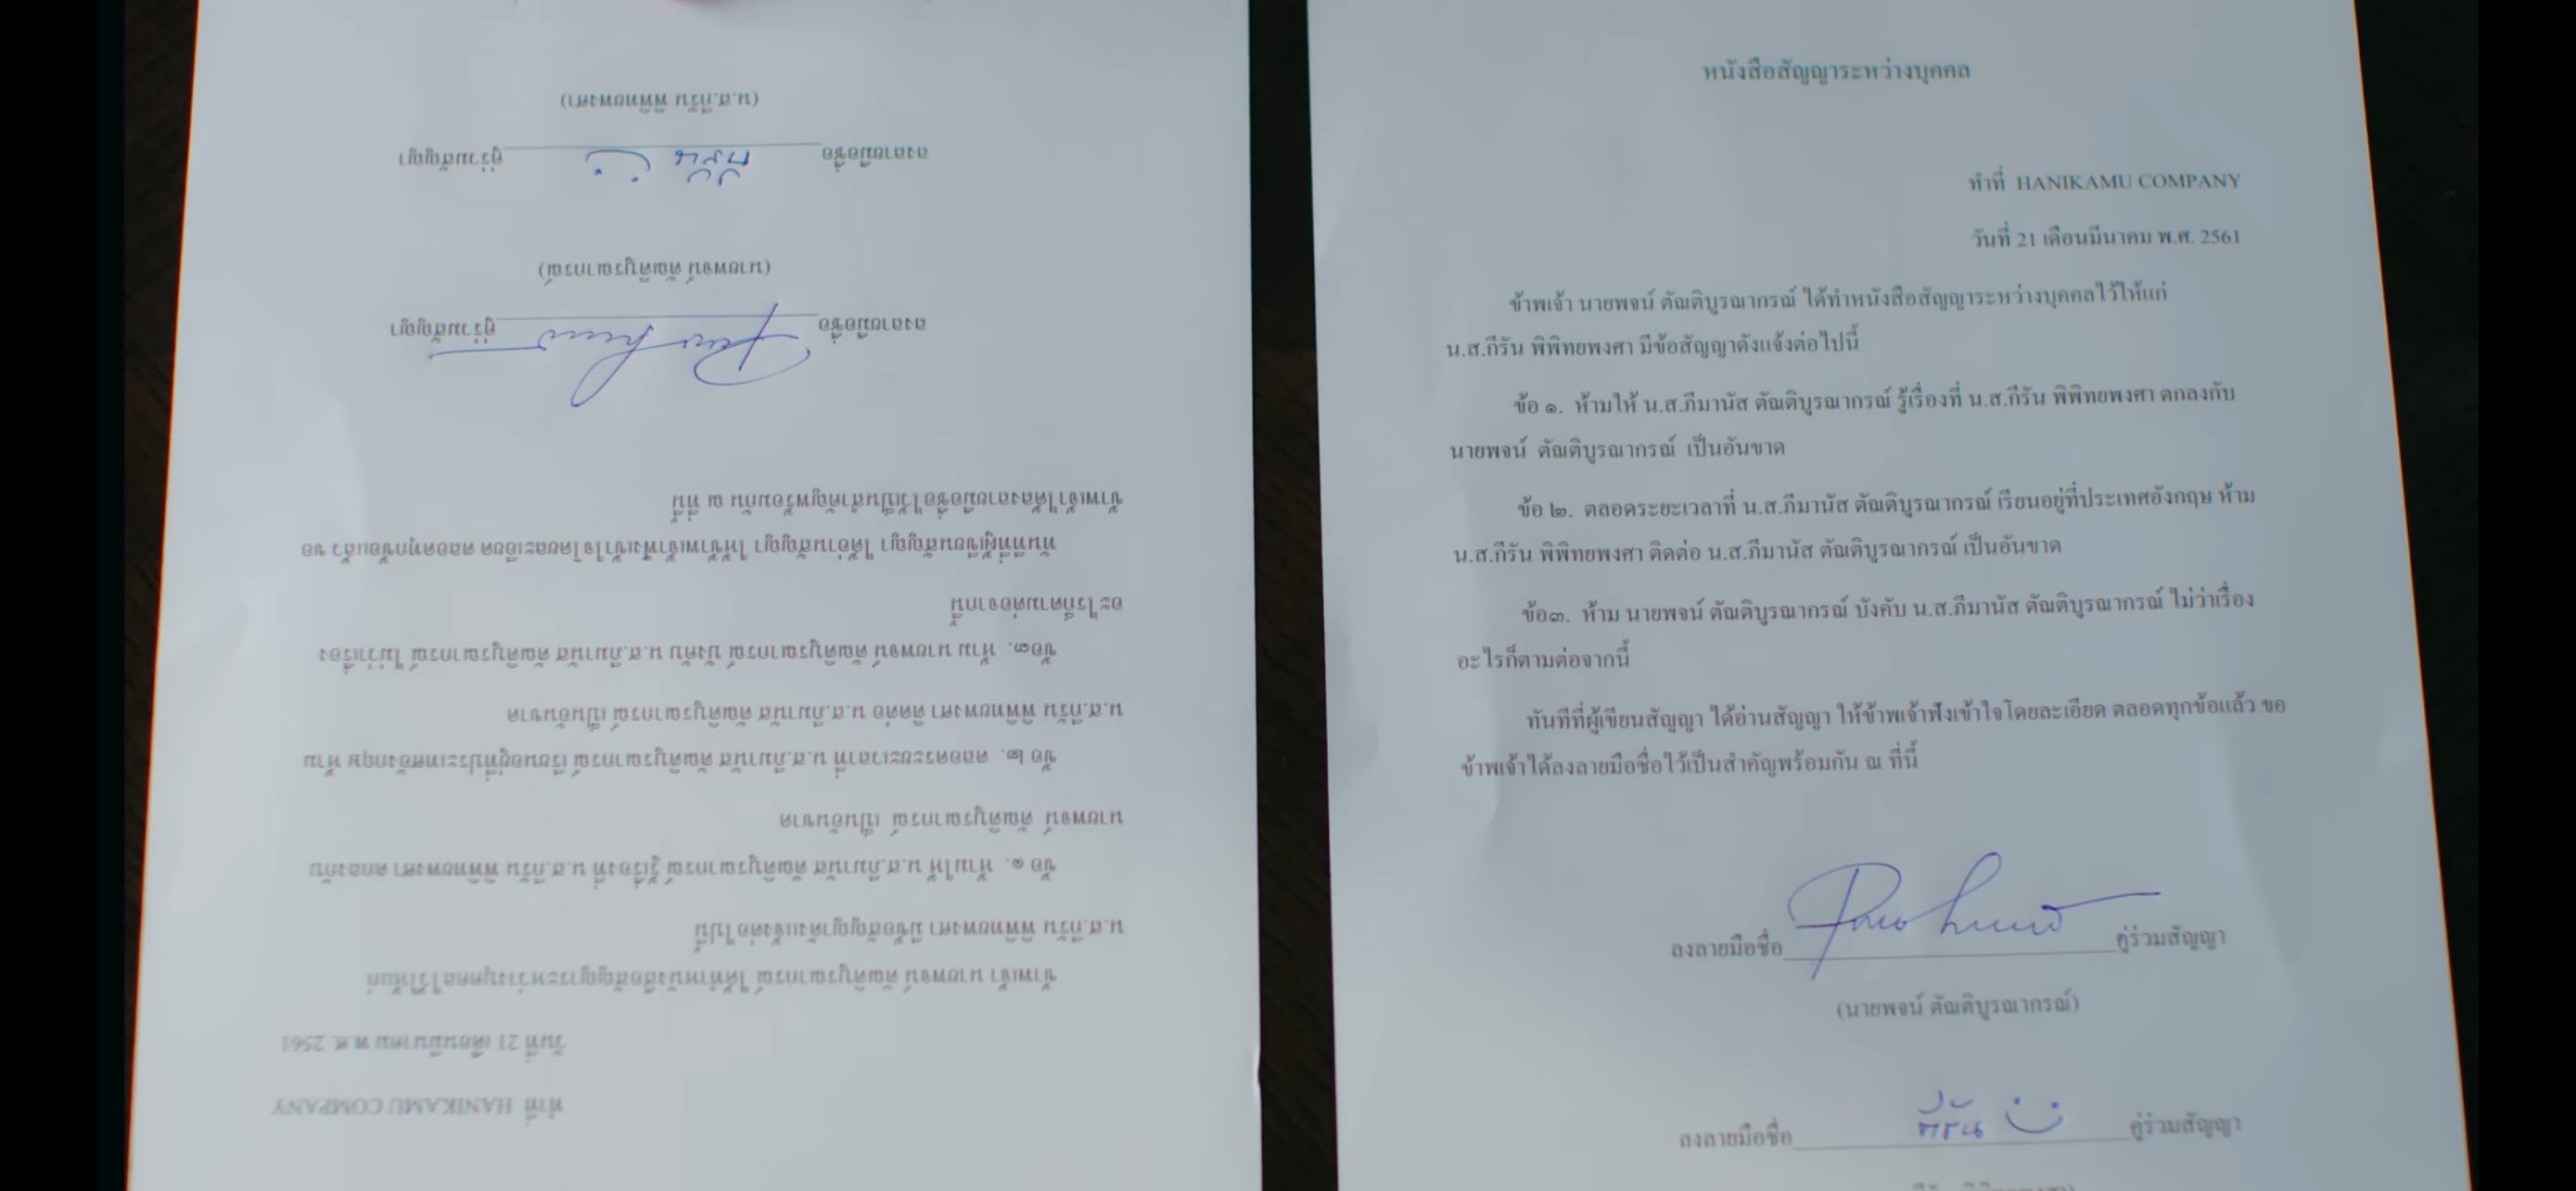 หนังสือสัญญาระหว่างบุคคล
ทำที่ HANIKAMU COMPANY
วันที่ 21 เดือนมีนาคม พ.ศ. 2561
ข้าพเจ้า นายพจน์ ตัณติบูรณากรณ์ ได้ทำหนังสือสัญญาระหว่างบุคคลไว้ให้แก่
น.ส.กีรัน พิพิทยพงศา มีข้อสัญญาดังแจ้งต่อไปนี้
ข้อ ๑. ห้ามให้ น.ส.ภีมานัส ตัณติบูรณากรณ์ รู้เรื่องที่ น.ส.กีรัน พิพิทยพงศา ตกลงกับ
นายพจน์ ตัณติบูรณากรณ์ เป็นอันขาด
ข้อ ๒. ตลอดระยะเวลาที่ น.ส.ภีมานัส ตัณติบูรณากรณ์ เรียนอยู่ที่ประเทศอังกฤษ ห้าม
น.ส.กีรัน พิพิทยพงศา ติดต่อ น.ส.ภีมานัส ตัณติบูรณากรณ์ เป็นอันขาด
ข้อ๓. ห้าม นายพจน์ ตัณติบูรณากรณ์ บังคับ น.ส.ภีมานัส ตัณติบูรณากรณ์ ไม่ว่าเรื่อง
อะไรก็ตามต่อจากนี้
ทันทีที่ผู้เขียนสัญญา ได้อ่านสัญญา ให้ข้าพเจ้าฟังเข้าใจโดยละเอียด ตลอดทุกข้อแล้ว ขอ
ข้าพเจ้าได้ลงลายมือชื่อไว้เป็นสำคัญพร้อมกัน ณ ที่นี้
ลงลายมือชื่อ คู่ร่วมสัญญา
(นายพจน์ ตัณติบูรณากรณ์)
ลงลายมือชื่อ กีรัน คู่ร่วมสัญญา
ทำที่ HANIKAMU COMPANY
วันที่ 21 เดือนมีนาคม พ.ศ. 2561
ข้าพเจ้า นายพจน์ ตัณติบูรณากรณ์ ได้ทำหนังสือสัญญาระหว่างบุคคลไว้ให้แก่
น.ส.กีรัน พิพิทยพงศา มีข้อสัญญาดังแจ้งต่อไปนี้
ข้อ ๑. ห้ามให้ น.ส.ภีมานัส ตัณติบูรณากรณ์ รู้เรื่องที่ น.ส.กีรัน พิพิทยพงศา ตกลงกับ
นายพจน์ ตัณติบูรณากรณ์ เป็นอันขาด
ข้อ ๒. ตลอดระยะเวลาที่ น.ส.ภีมานัส ตัณติบูรณากรณ์ เรียนอยู่ที่ประเทศอังกฤษ ห้าม
น.ส.กีรัน พิพิทยพงศา ติดต่อ น.ส.ภีมานัส ตัณติบูรณากรณ์ เป็นอันขาด
ข้อ๓. ห้าม นายพจน์ ตัณติบูรณากรณ์ บังคับ น.ส.ภีมานัส ตัณติบูรณากรณ์ ไม่ว่าเรื่อง
อะไรก็ตามต่อจากนี้
ทันทีที่ผู้เขียนสัญญา ได้อ่านสัญญา ให้ข้าพเจ้าฟังเข้าใจโดยละเอียด ตลอดทุกข้อแล้ว ขอ
ข้าพเจ้าได้ลงลายมือชื่อไว้เป็นสำคัญพร้อมกัน ณ ที่นี้
ลงลายมือชื่อ คู่ร่วมสัญญา
(นายพจน์ ตัณติบูรณากรณ์)
ลงลายมือชื่อ กีรัน คู่ร่วมสัญญา
(น.ส.กีรัน พิพิทยพงศา)